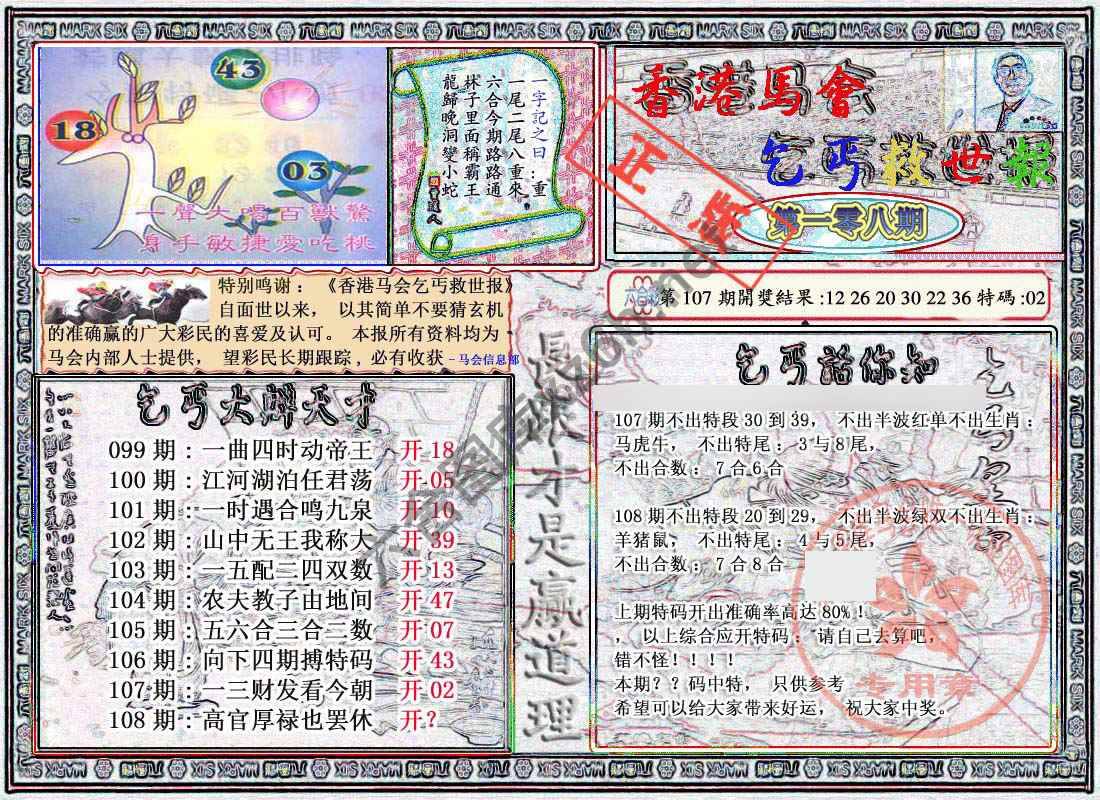 43
18
03
一聲大喝百獸驚
身手敏捷愛吃桃
一字記之曰:重
一尾二尾八重來
六合今期路路通
林子里面稱霸王
龍歸晚洞變小蛇
香港馬會
乞丐救世報
第一零八期
正版
特别鸣谢：《香港马会乞丐救世报》
自面世以来， 以其简单不要猜玄机
的准确赢的广大彩民的喜爱及认可。 本报所有资料均为
马会内部人士提供， 望彩民长期跟踪，必有收获 - 马会信息部
第 107 期開獎結果 :12 26 20 30 22 36 特碼 :02
乞丐大辩天才
099 期 : 一曲四时动帝王 开 18
100 期 : 江河湖泊任君荡 开 05
101 期 : 一时遇合鸣九泉 开 10
102 期 : 山中无王我称大 开 39
103 期 : 一五配二四双数 开 13
104 期 : 农夫教子由地间 开 47
105 期 : 五六合三合二数 开 07
106 期 : 向下四期搏特码 开 43
107 期 : 一三财发看今朝 开 02
108 期 : 高官厚禄也罢休 开 ?
長跟才是贏道理
乞丐話你知
107 期不出特段 30 到 39， 不出半波红单不出生肖：
马虎牛， 不出特尾： 3 与 8 尾,
不出合数： 7 合 6 合
108 期不出特段 20 到 29， 不出半波绿双不出生肖：
羊猪鼠， 不出特尾： 4 与 5 尾，
不出合数： 7 合 8 合
上期特码开出准确率高达 80%！
， 以上综合应开特码： 请自己去算吧，
错不怪！！！！
本期？？码中特， 只供参考
希望可以给大家带来好运， 祝大家中奖。
专用章